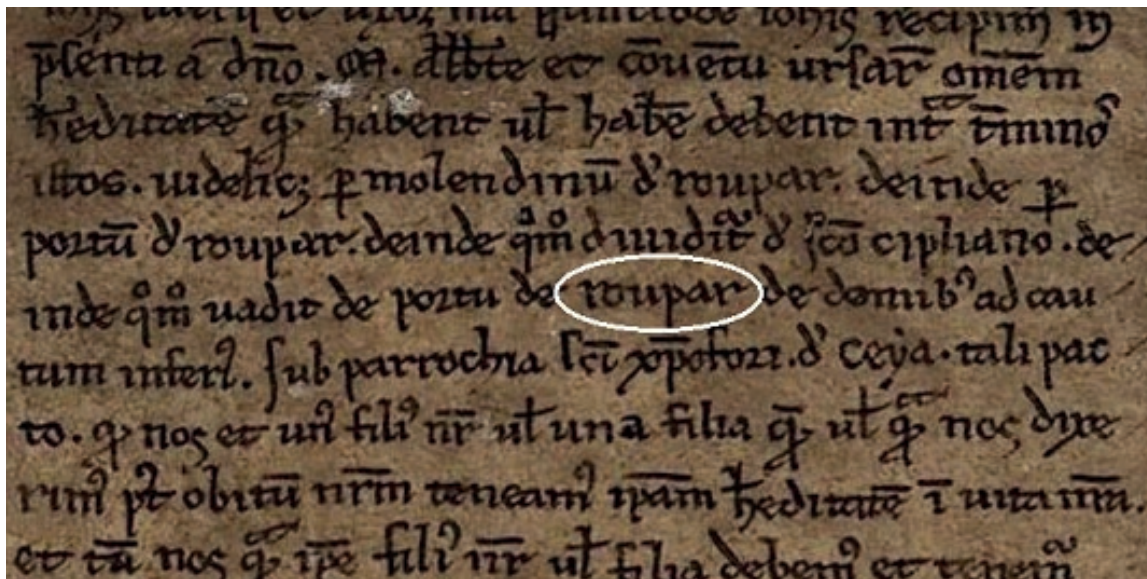 et uxor mea recipim in
p̄senti a dn̄o . M̄ . abb̄te et cōuētu ursar̄ om̄em
h̄editatē q̄ habent ul̄ hab̄e debent int̄ t̄mino᷒
istos . uidelicꝫ ꝑ molendinū d' roupar . deinde ꝑ
portū d' roupar . deinde qͦmͦ diuidit᷑ d' sc̄o cipͥiano . de
inde qͦmͦ uadit de portu de roupar de domibꝰ ad cau
tum inferiꝰ . ſub parrochia ſc̄i xp̄ofori . d' ceya . tali pac
to . qͥ nos et unꝰ filiꝰ nr̄ ul̄ una filia q̄ ul̄ q̄ nos dixe
rimꝰ pꝰt obitū nr̄m teneamꝰ ip̄am h̄editatē ī uita nr̄a .
et tā nos q̄ ip̄e filiꝰ nr̄ ul̄ filia debemꝰ et tenem᷑